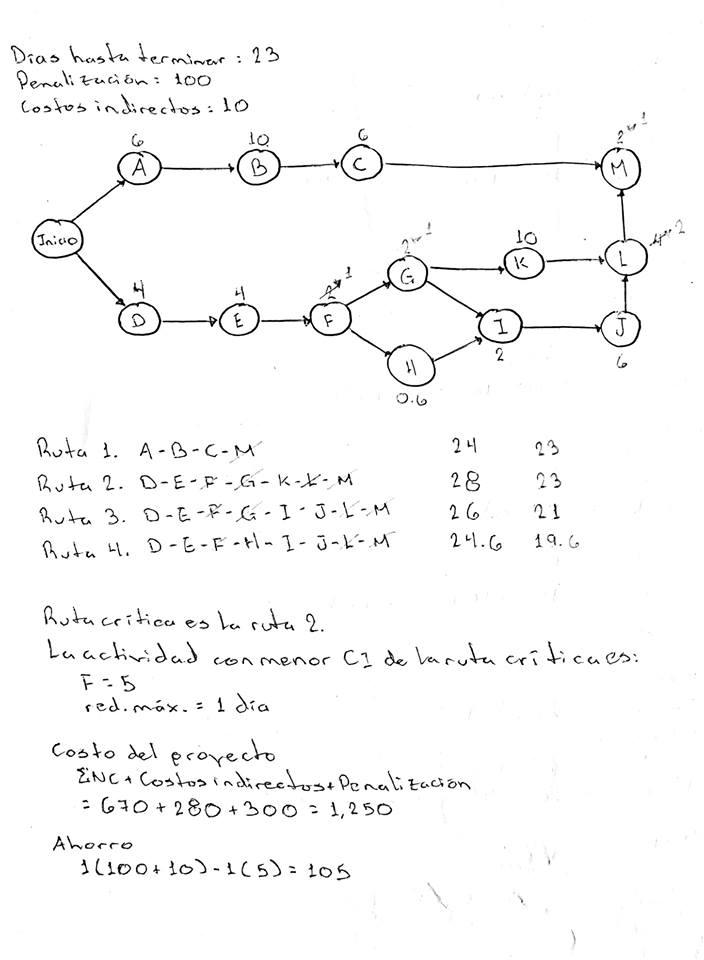 Días hasta terminar : 23
Penalización : 100
Costos indirectos : 10
6 10 6 2→1
A B C M
Inicio
2→1 10 4→2
G K L
4 4 2→1
D E F I J
2 6
H
0.6
Ruta 1. A-B-C-M 24 23
Ruta 2. D-E-F-G-K-L-M 28 23
Ruta 3. D-E-F-G-I-J-L-M 26 21
Ruta 4. D-E-F-H-I-J-L-M 24.6 19.6
Ruta crítica es la ruta 2.
La actividad con menor CI de la ruta crítica es:
F = 5
red. máx. = 1 día
Costo del proyecto
ΣNC + Costos indirectos + Penalización
= 670 + 280 + 300 = 1,250
Ahorro
1(100 + 10) - 1(5) = 105